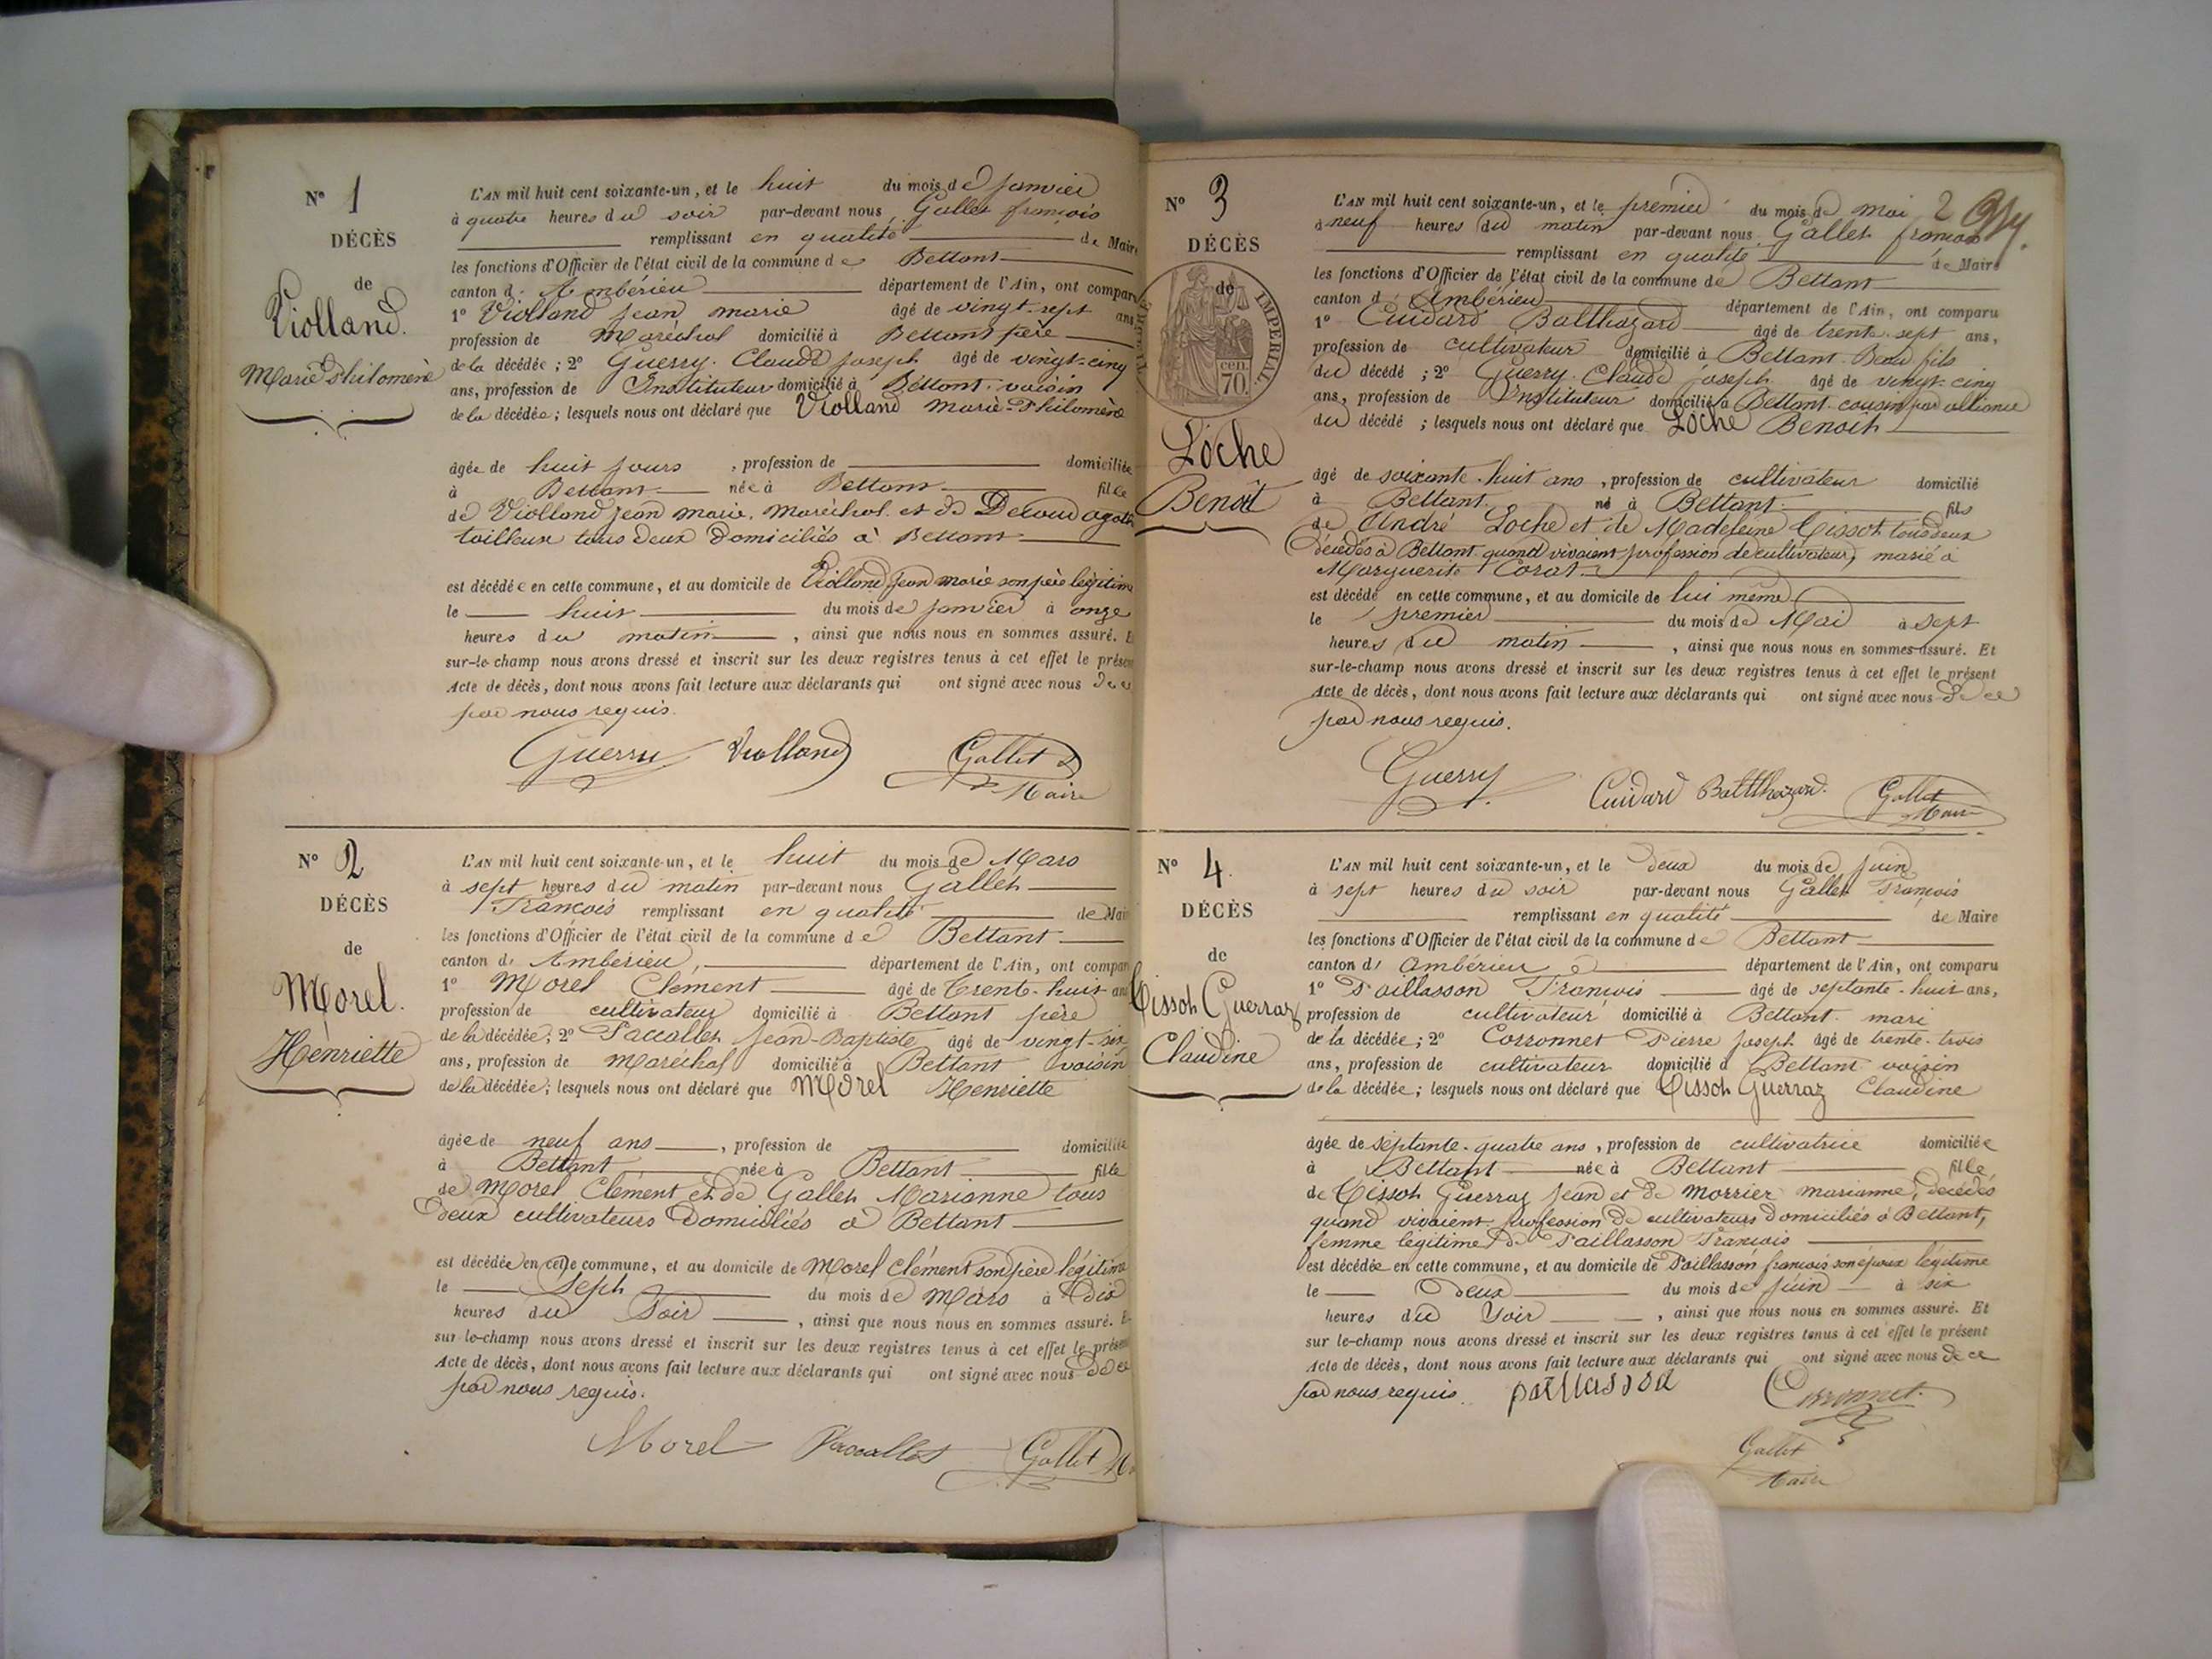 N° 1
DÉCÈS
de
Violland.
Marie Philomène
L'AN mil huit cent soixante-un, et le huit du mois de janvier
à quatre heures du soir par-devant nous, Gallet françois
remplissant en qualité de Maire
les fonctions d'Officier de l'état civil de la commune de Bettant
canton d'Ambérieu département de l'Ain, ont comparu
1° Violland jean marie âgé de vingt-sept ans
profession de Maréchal domicilié à Bettant père
de la décédée; 2° Guerry Claude joseph âgé de vingt-cinq
ans, profession de Instituteur domicilié à Bettant voisin
de la décédée; lesquels nous ont déclaré que Violland Marie-Philomène
âgée de huit jours, profession de domiciliée
à Bettant née à Bettant fille
de Violland jean marie, Maréchal et de agath
tailleuse tous deux domiciliés à Bettant
est décédée en cette commune, et au domicile de Violland jean marie son père légitime
le huit du mois de janvier à onze
heures du matin, ainsi que nous nous en sommes assuré. E
sur-le-champ nous avons dressé et inscrit sur les deux registres tenus à cet effet le présen
Acte de décès, dont nous avons fait lecture aux déclarants qui ont signé avec nous de ce
par nous requis.
Guerry Violland Gallet
Maire
N° 2
DÉCÈS
de
Morel.
Henriette
L'AN mil huit cent soixante-un, et le huit du mois de Mars
à sept heures du matin par-devant nous Gallet
François remplissant en qualité de Mai
les fonctions d'Officier de l'état civil de la commune de Bettant
canton d'Ambérieu, département de l'Ain, ont compar
1° Morel Clement âgé de trente-huit ans
profession de cultivateur domicilié à Bettant père
de la décédée; 2° Paccallet jean-Baptiste âgé de vingt-six
ans, profession de Maréchal domicilié à Bettant voisin
de la décédée; lesquels nous ont déclaré que Morel Henriette
âgée de neuf ans, profession de domiciliée
à Bettant née à Bettant fille
de Morel Clément et de Gallet Marianne tous
deux cultivateurs domiciliés à Bettant
est décédée en cette commune, et au domicile de Morel Clément son père légitime
le Sept du mois de Mars à dix
heures du Soir, ainsi que nous nous en sommes assuré. E
sur-le-champ nous avons dressé et inscrit sur les deux registres tenus à cet effet le présen
Acte de décès, dont nous avons fait lecture aux déclarants qui ont signé avec nous de ce
par nous requis.
Morel Paccallet Gallet
N° 3
DÉCÈS
de
IMPERIAL
70
cen
Loche
Benoit
2
L'AN mil huit cent soixante-un, et le premier du mois de mai
à neuf heures du matin par-devant nous Gallet françois
remplissant en qualité de Maire
les fonctions d'Officier de l'état civil de la commune de Bettant
canton d'Ambérieu département de l'Ain, ont comparu
1° Cuidard Balthazard âgé de trente-sept ans,
profession de cultivateur domicilié à Bettant Beau fils
du décédé; 2° Guerry Claude joseph âgé de vingt-cinq
ans, profession de Instituteur domicilié à Bettant cousin par alliance
du décédé; lesquels nous ont déclaré que Loche Benoit
âgé de soixante-huit ans, profession de cultivateur domicilié
à Bettant né à Bettant fils
de André Loche et de Madeleine Tissot tous deux
décédés à Bettant quand vivaient profession de cultivateur, marié à
Marguerite Corat
est décédé en cette commune, et au domicile de lui même
le premier du mois de Mai à sept
heures du matin, ainsi que nous nous en sommes assuré. Et
sur-le-champ nous avons dressé et inscrit sur les deux registres tenus à cet effet le présent
Acte de décès, dont nous avons fait lecture aux déclarants qui ont signé avec nous de ce
par nous requis.
Guerry Cuidard Baltthazard. Gallet
Maire
N° 4
DÉCÈS
de
Tissot Guerraz
Claudine
L'AN mil huit cent soixante-un, et le deux du mois de juin
à sept heures du soir par-devant nous Gallet François
remplissant en qualité de Maire
les fonctions d'Officier de l'état civil de la commune de Bettant
canton d'Ambérieu département de l'Ain, ont comparu
1° Paillasson François âgé de septante-huit ans,
profession de cultivateur domicilié à Bettant mari
de la décédée; 2° Corronnet Pierre joseph âgé de trente-trois
ans, profession de cultivateur domicilié à Bettant voisin
de la décédée; lesquels nous ont déclaré que Tissot Guerraz Claudine
âgée de septante-quatre ans, profession de cultivatrice domiciliée
à Bettant née à Bettant fille
de Tissot Guerraz Jean et de Morrier marianne, décédés
quand vivaient profession de cultivateurs domiciliés à Bettant,
femme légitime de Paillasson François
est décédée en cette commune, et au domicile de Paillasson françois son époux légitime
le Deux du mois de juin à six
heures du Soir, ainsi que nous nous en sommes assuré. Et
sur le-champ nous avons dressé et inscrit sur les deux registres tenus à cet effet le présent
Acte de décès, dont nous avons fait lecture aux déclarants qui ont signé avec nous de ce
par nous requis. paillasson Corronnet.
Gallet
Maire